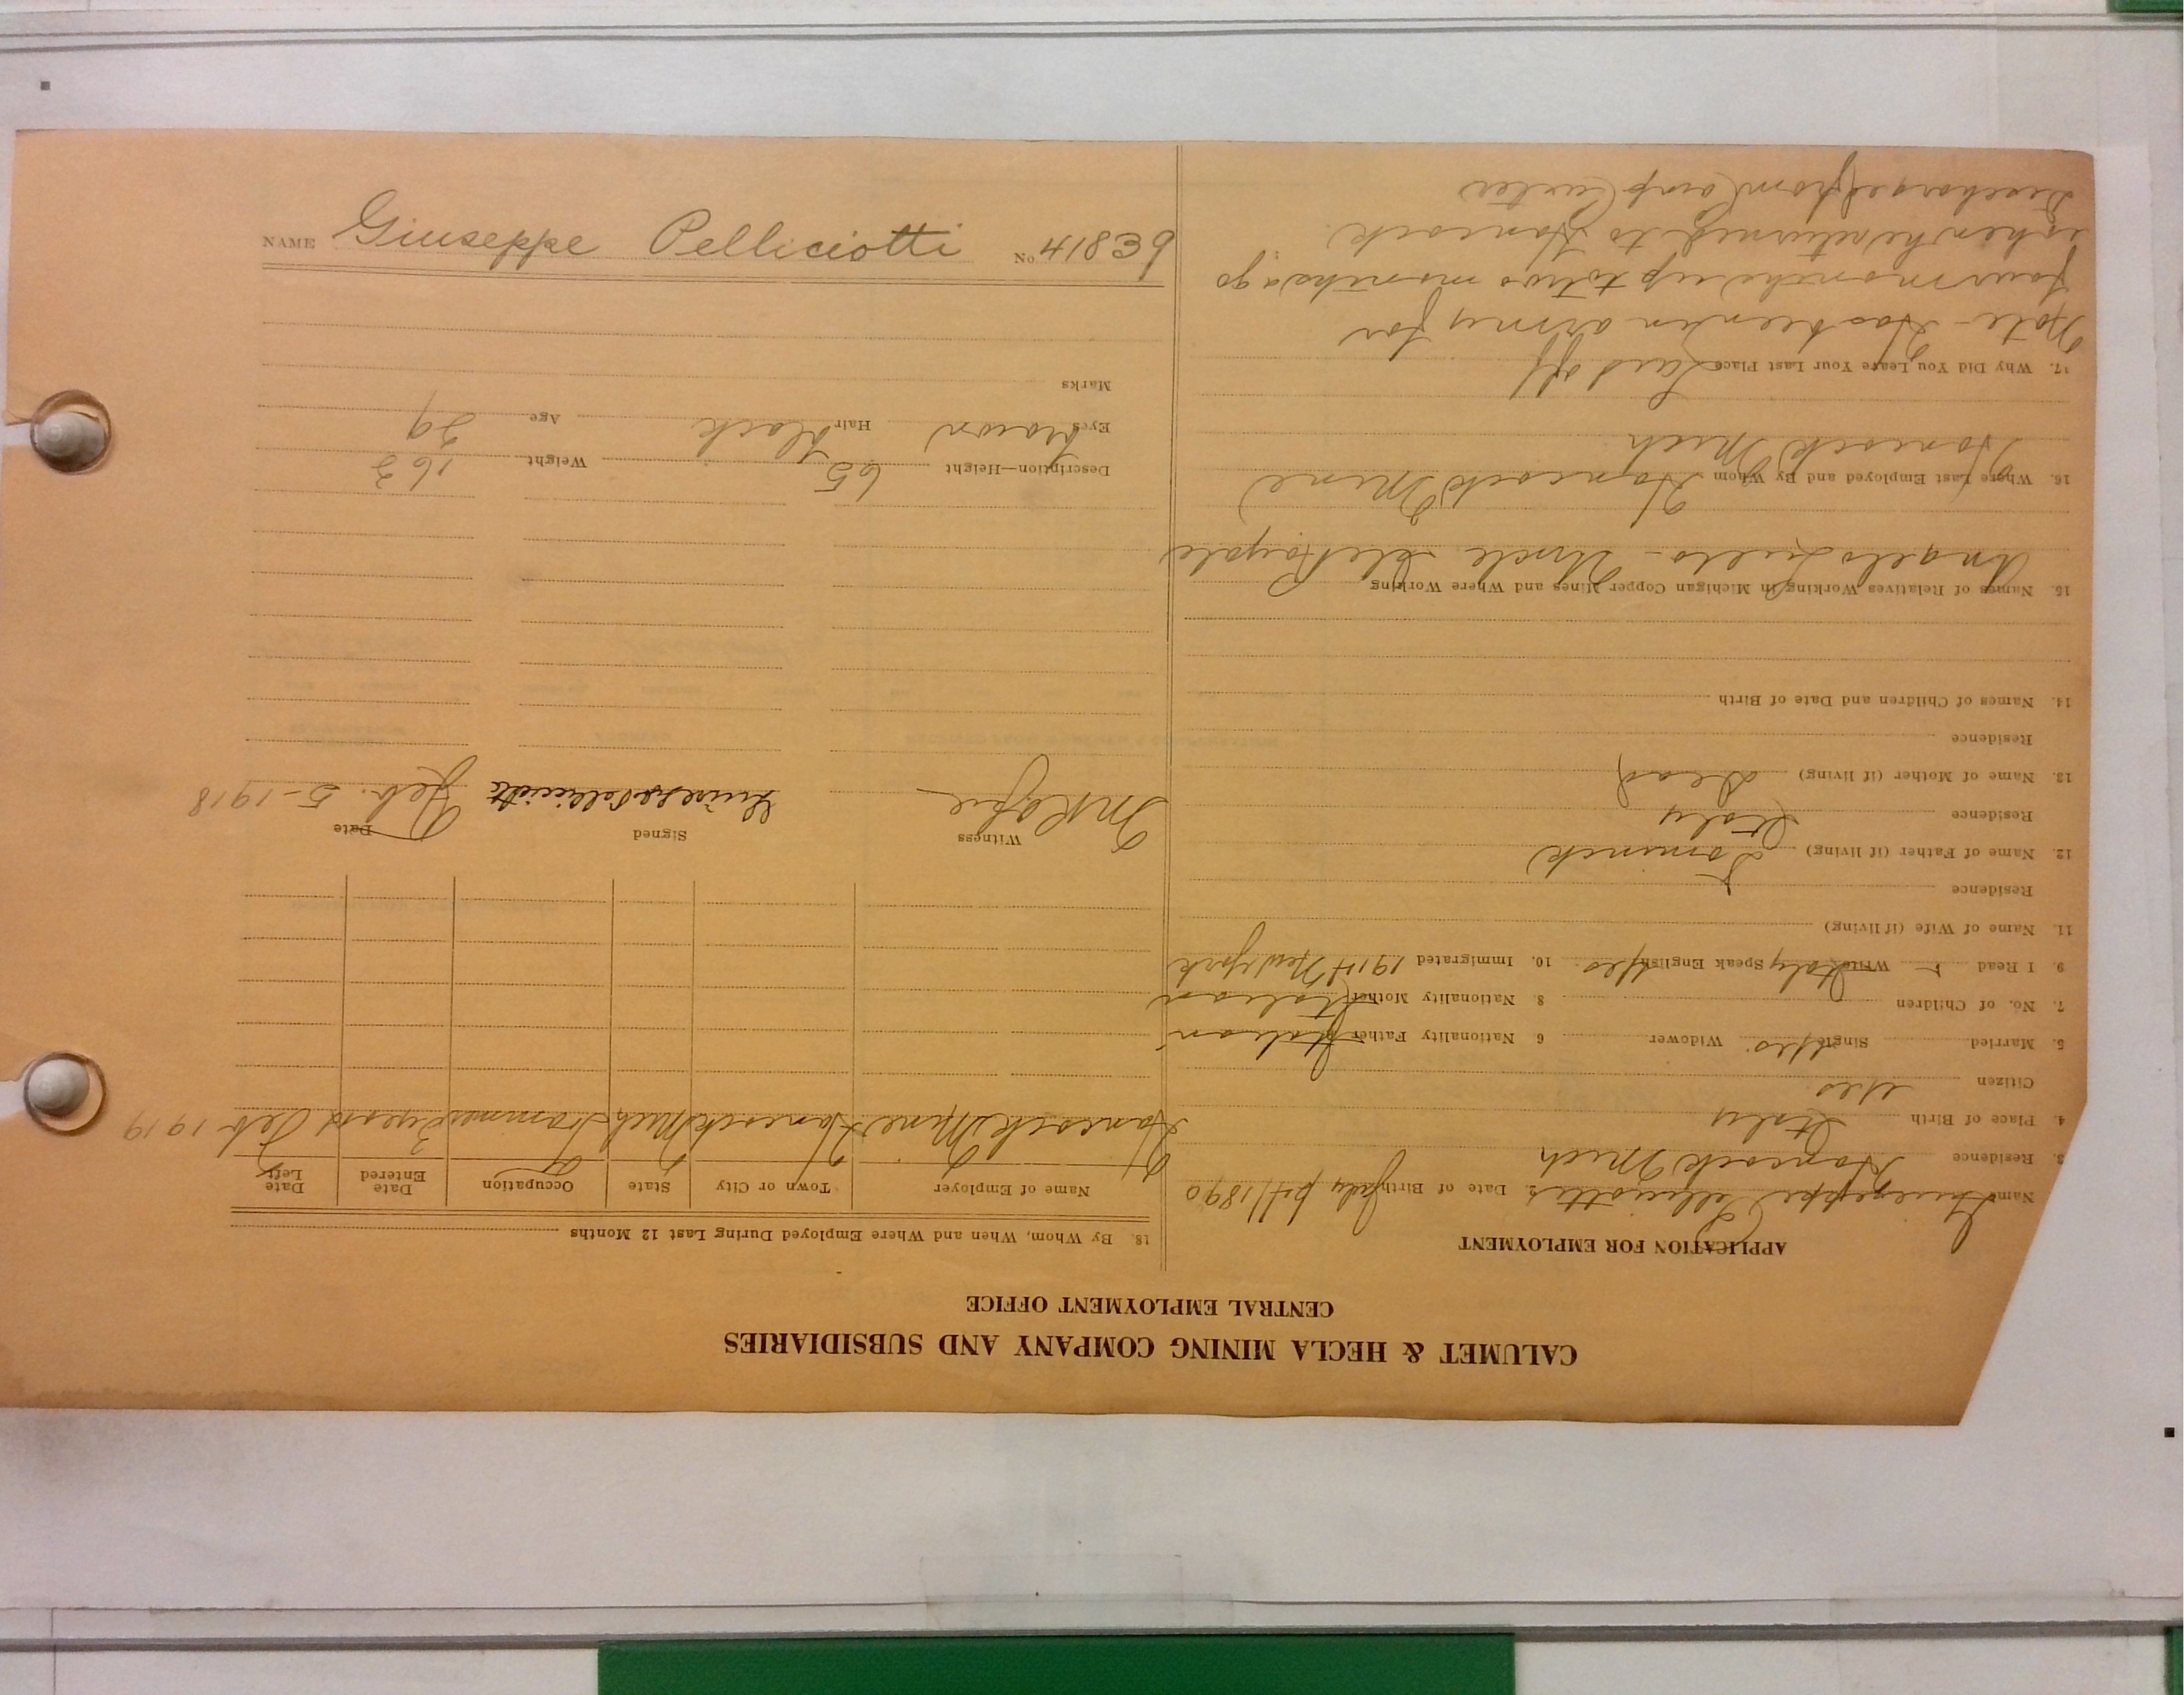 CALUMET & HECLA MINING COMPANY AND SUBSIDIARIES
CENTRAL EMPLOYMENT OFFICE
APPLICATION FOR EMPLOYMENT
Name Giuseppe Pelliciotti 2. Date of Birth July 1890
3. Residence Hancock Mich
4. Place of Birth Italy
Citizen Yes
5. Married Single Yes. Widower 6 Nationality Father Italian
7. No. of Children 8. Nationality Mother Italian
9. I Read Write Italy Speak English Yes. 10. Immigrated 1914 New York
11. Name of Wife (if living)
Residence
12. Name of Father (if living) Dominick
Residence Italy
13. Name of Mother (if living) Dead
Residence
14. Names of Children and Date of Birth
15. Names of Relatives Working in Michigan Copper Mines and Where Working
Angelo Lullo - Uncle Isle Royale
16. Where Last Employed and By Whom Hancock Mine
Hancock Mich.
17. Why Did You Leave Your Last Place Laid off
Note - Has been in army for
four months up to two months ago
when he returned to Hancock.
Discharged from Camp Custer
18. By Whom, When and Where Employed During Last 12 Months
Name of Employer Town or City State Occupation Date Entered Date Left
Hancock Mine Hancock Mich Trammer Feb 1919
Witness Signed Date
Giuseppe Pelliciotti Feb. 5-1918
Description—Height 65 Weight 163
Eyes brown Hair black Age 29
Marks
NAME Giuseppe Pelliciotti No 41839